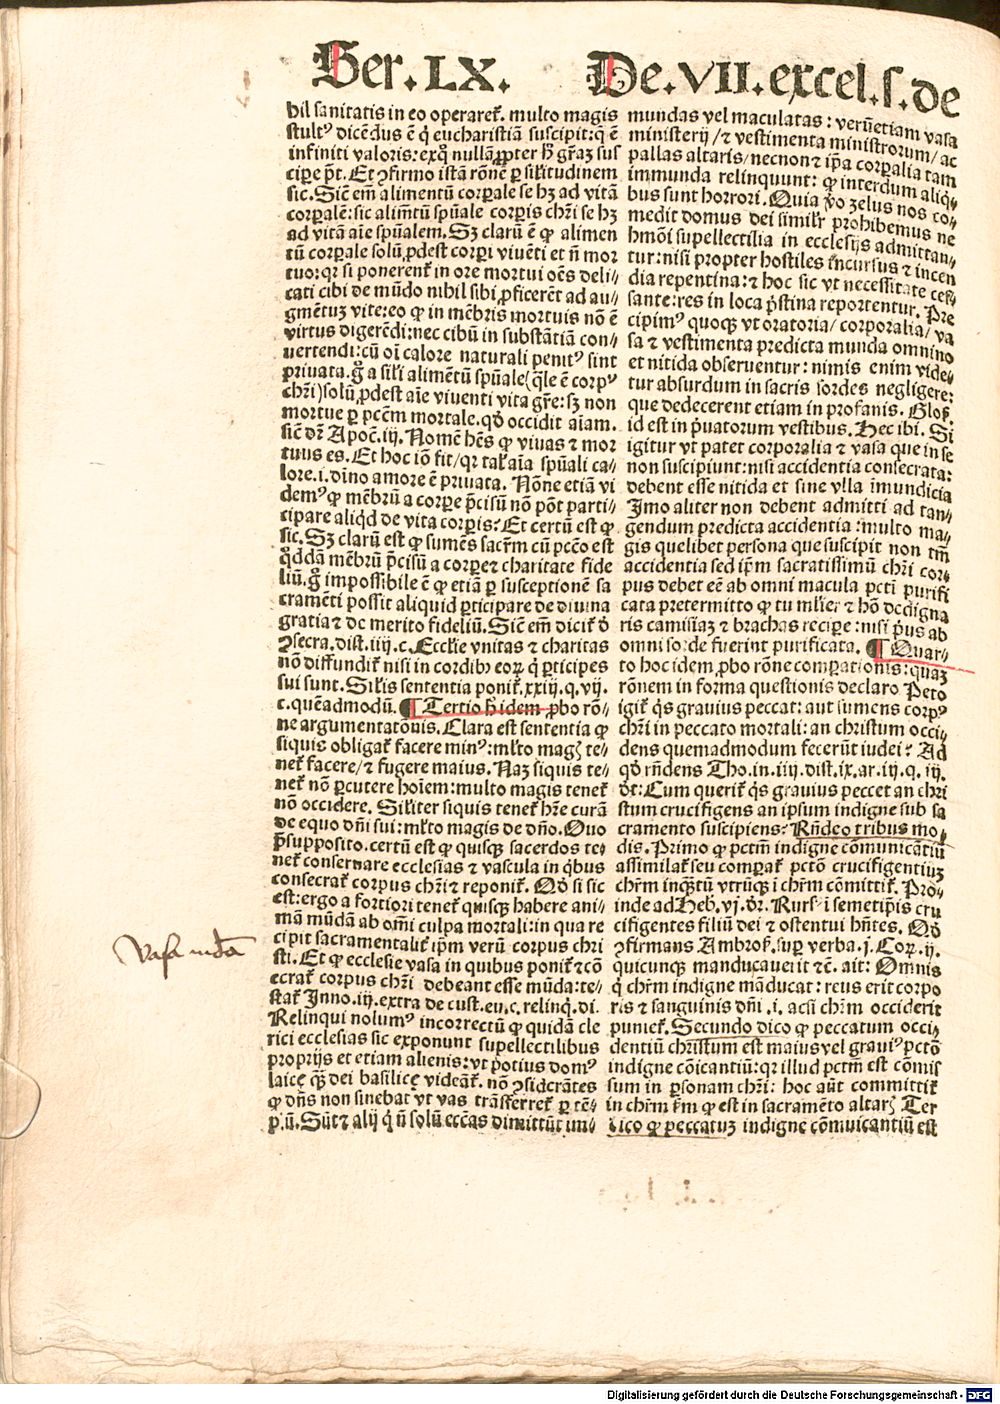 Ser.LX. De.VII.excel.s.de
hil sanitatis in eo operaret᷑. multo magis
stultꝰ dicēdus ē q̇ eucharistiā suscipit: q̄ ē
infiniti valoris: exq̊ nullā ꝓpter h̓ gr̄aꝫ sus
cipe p̄t. Et ꝯfirmo istā rōnē ꝑ sil̓itudinem
sic. Sic̄ em̄ alimentū corꝑale se hꝫ ad vitā
corꝑalē: sic alim̄tū sp̄uale corꝑis chr̄i se hꝫ
ad vitā aīe sp̄ualem. Sꝫ clarū ē ꝙ alimen
tū corꝑale solū ꝓdest corꝑi viuēti et n̄ mor
tuo: qꝛ si ponerent᷑ in ore mortui oēs deli⸗
cati cibi de mūdo nihil sibi ꝓficerēt ad au⸗
gmētuꝫ vite: eo ꝙ in mēbris mortuis nō ē
virtus digerēdi: nec cibū in substātiā con⸗
uertendi: cū oī calore naturali penitꝰ sint
priuata. g̊ a sil̓i alimētū sp̄uale (q̄le ē corpꝰ
chr̄i) solū ꝓdest aīe viuenti vita gr̄e: sꝫ non
mortue ꝑ pcc̄m mortale. qd̓ occidit aīam.
sic̄ dr̄ Apoc̄. iij. Nomē hēs ꝙ viuas ⁊ mor
tuus es. Et hoc iō fit / qꝛ tal̓ aīa sp̄uali ca⸗
lore .i. diīno amore ē priuata. Nōne etiā vi
demꝰ ꝙ mēbrū a corꝑe p̄cisū nō pōt parti⸗
cipare aliqd̓ de vita corꝑis? Et certū est ꝙ
sic. Sꝫ clarū est ꝙ sumēs sacr̄m cū pcc̄o est
q̊ddā mēbrū p̄cisū a corꝑe ⁊ charitate fide
liū. g̊ impossibile ē ꝙ etiā ꝑ susceptionē sa
cramēti possit aliquid ꝑticipare de diuina
gratia ⁊ de merito fideliū. Sic̄ em̄ dicit᷑ d̓
ꝯsecra. dist. iiij. c. Eccl̓ie vnitas ⁊ charitas
nō diffundit᷑ nisi in cordibꝰ eoꝝ q̇ ꝑticipes
sui sunt. Sil̓is sententia ponit᷑. xxiij. q. vij.
c. quēadmodū. ¶ Tertio h̓ idem ꝓbo rō⸗
ne argumentatōnis. Clara est sententia ꝙ
siquis obligat᷑ facere minꝰ: ml̓to magꝭ te⸗
net᷑ facere / ⁊ fugere maius. Naꝫ siquis te⸗
net᷑ nō ꝑcutere hoīem: multo magis tenet᷑
nō occidere. Sil̓iter siquis tenet᷑ hr̄e curā
de equo dn̄i sui: ml̓to magis de dn̄o. Quo
p̄supposito. certū est ꝙ quisqꝫ sacerdos te⸗
net᷑ conseruare ecclesias ⁊ vascula in qb̓us
consecrat᷑ corpus chr̄i ⁊ reponit᷑. Qd̓ si sic
est: ergo a fortiori tenet᷑ quisqꝫ habere ani⸗
mā mūdā ab om̄i culpa mortali: in qua re
cipit sacramentalit᷑ ip̄m verū corpus chri
sti. Et ꝙ ecclesie vasa in quibus ponit᷑ ⁊ cō
ecrat᷑ corpus chr̄i debeant esse mūda: te⸗
stat᷑ Inno. iij. extra de cust. eu. c. relinq̇. di.
Relinqui nolumꝰ incorrectū ꝙ quidā cle
rici ecclesias sic exponunt supellectilibus
proprijs et etiam alienis: vt potius domꝰ
laicę qꝫ̄ dei basilicę videāt᷑. nō ꝯsidrātes
ꝙ dn̄s non sinebat vt vas trāsferret᷑ ꝑ tē⸗
pꝉū. Sūt ⁊ alij q̇ n̄ solū ecc̄as dimittūt im⸗
mundas vel maculatas: verūetiam vasa
ministerij / ⁊ vestimenta ministrorum / ac
pallas altaris / necnon ⁊ ip̄a corꝑalia tam
immunda relinquunt: ꝙ interdum aliq̇⸗
bus sunt horrori. Quia v̓o zelus nos co⸗
medit domus dei simil̓r prohibemus ne
hmōi supellectilia in ecclesijs admittan⸗
tur: nisi propter hostiles incursus ⁊ incen
dia repentina: ⁊ hoc sic vt necessitate ces⸗
sante: res in loca p̓stina reportentur. Pre
cipimꝰ quoqꝫ vt oratoria / corporalia / va
sa ⁊ vestimenta predicta munda omnino
et nitida obseruentur: nimis enim vide⸗
tur absurdum in sacris sordes negligere:
que dedecerent etiam in profanis. Glos̓.
id est in p̓uatorum vestibus. Hec ibi. Si
igitur vt patet corporalia ⁊ vasa que in se
non suscipiunt: nisi accidentia consecrata:
debent esse nitida et sine vlla īmundicia
Imo aliter non debent admitti ad tan⸗
gendum predicta accidentia: multo ma⸗
gis quelibet persona que suscipit non tm̄
accidentia sed ip̄m sacratissimū chr̄i cor⸗
pus debet eē ab omni macula pctī purifi
cata pretermitto ꝙ tu ml̓ier ⁊ hō dedigna
ris camisiaꝫ ⁊ brachas recipe: nisi p̓us ab
omni sorde fuerint purificata. ¶ Quar⸗
to hoc idem ꝓbo rōne comꝑationis: quaꝫ
rōnem in forma questionis declaro Peto
igit᷑ q̇s grauius peccat: aut sumens corpꝰ
chr̄i in peccato mortali: an christum occi⸗
dens quemadmodum fecerūt iudei? Ad
qd̓ rn̄dens Tho. in. iiij. dist. ix. ar. iij. q. iij.
dt̄: Cum querit᷑ q̇s grauius peccet an chri
stum crucifigens an ipsum indigne sub sa
cramento suscipiens? Rn̄deo tribus mo⸗
dis. Primo ꝙ pctm̄ indigne cōmunicātiū
assimilat᷑ seu comꝑat᷑ pctō crucifigentiuꝫ
chr̄m inqꝫtū vtrūqꝫ ī chr̄m cōmittit᷑. Pro⸗
inde ad Heb. vj. dr̄. Rurs̓ ī semetip̄is cru
cifigentes filiū dei ⁊ ostentui hn̄tes. Qd̓
ꝯfirmans Ambros̓. suꝑ verba. j. Cor. ij.
quicunqꝫ manducauerit ⁊c̄. ait: Omnis
q̇ chr̄m indigne māducat: reus erit corpo
ris ⁊ sanguinis dn̄i .i. acsi chr̄m occiderit
puniet᷑. Secundo dico ꝙ peccatum occi⸗
dentiū christum est maius vel grauiꝰ pctō
indigne cōicantiū: qꝛ illud pctm̄ est cōmis
sum in ꝑsonam chr̄i: hoc aūt committit᷑
in chr̄m fm̄ ꝙ est in sacramēto altarꝭ Ter
tio dico ꝙ peccatuꝫ indigne cōmuicantiū est
Vasa mūda
Digitalisierung gefördert durch die Deutsche Forschungsgemeinschaft - DFG